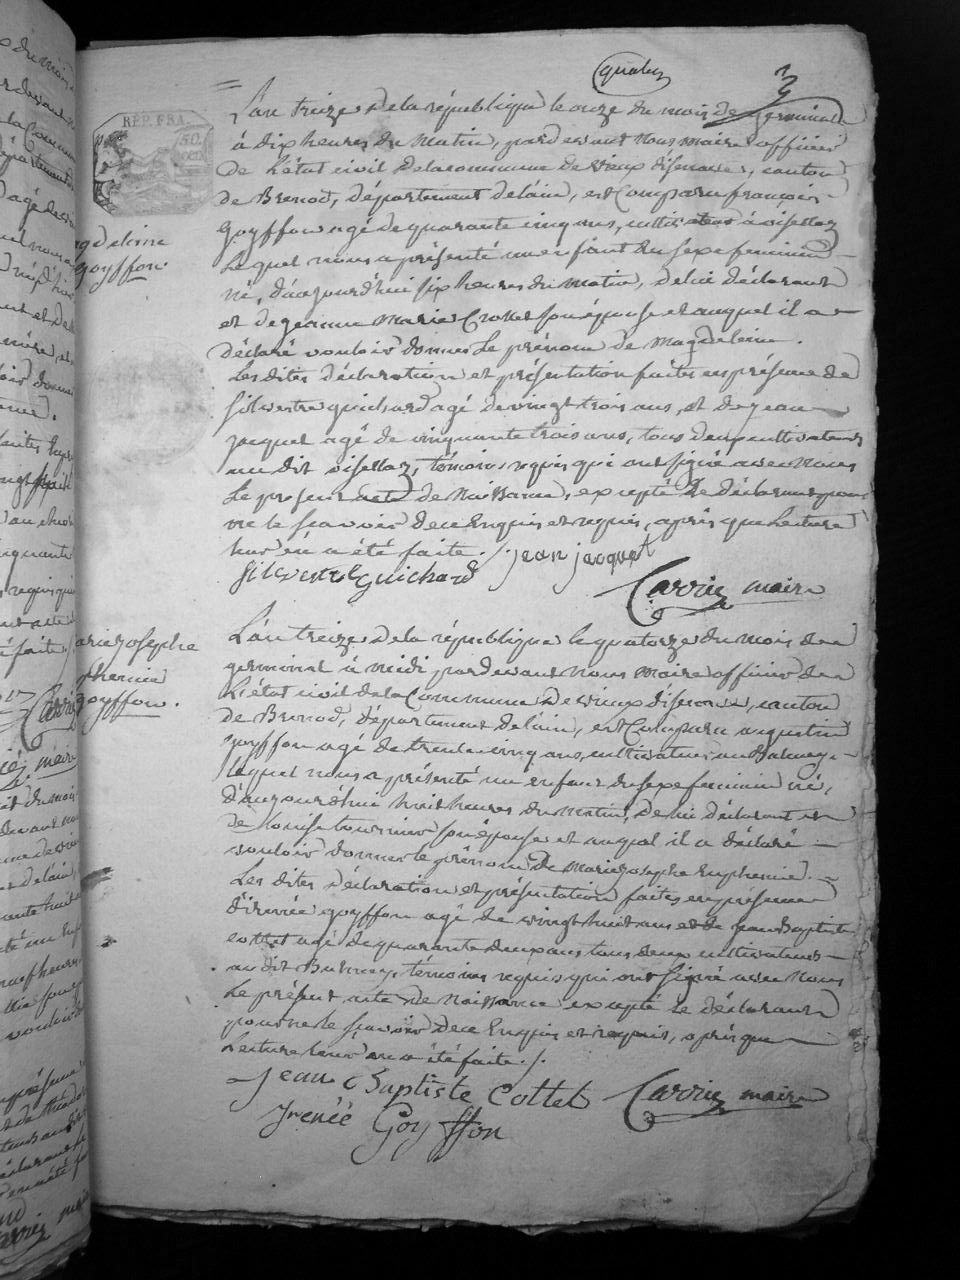 quatre
3
REP. FRA.
50. cen
L'an treize de la république le onze du mois de germinal
à dix heures du matin, pardevant nous maire officier
de l'état civil de la commune de vieux d'isenave, canton
de Brenod, département de l'ain, est Comparu françois
Goyffon agé de quarante cinq ans, cultivateur à oisellaz
Lequel nous a présenté un enfant du sexe feminin
né, d'aujourd'hui six heures du matin, de lui déclarant
et de jeanne Marie Crottet son épouse et auquel il a
déclaré vouloir donner le prénom de Magdeleine.
Les dites déclaration et présentation faites en présence de
Silvestre guichard agé de vingt trois ans, et de jean
jacquet agé de cinquante trois ans, tous deux cultivateurs
au dit oisellaz, témoins requis qui ont signé avec nous
Le présent acte de Naissance, excepté le déclarant pour
ne le sçavoir de ce Enquis et requis, après que Lecture
leur en a été faite. /. jean jacquet
Silvestre Guichard
Carrier maire
Magdeleine
Goyffon.
L'an treize de la république le quatorze du mois de
germinal à midi, pardevant nous maire officier de
L'état civil de la Commune de vieux d'isenave, canton
de Brenod, département de l'ain, est Comparu augustin
Goyffon agé de trente cinq ans, cultivateur au Balmay
lequel nous a présenté un enfant du sexe feminin né,
d'aujourd'hui huit heures du matin, de lui déclarant et
de Louise tournier son épouse et auquel il a déclaré
vouloir donner le prénom de Marie josephe Euphemie.
Les dites déclaration et présentation faites en présence
d'irenée goyffon agé de vingt huit ans et de jean Baptiste
cottet agé de quarante deux ans tous deux cultivateurs
au dit Balmay, témoins requis qui ont signé avec nous
Le présent acte de Naissance excepté le déclarant
pour ne le sçavoir de ce Enquis et requis, après que
Lecture leur en a été faite. /.
Jean Baptiste Cottet
Carrier maire
Irenée Goyffon
Marie josephe
Euphemie
Goyffon.